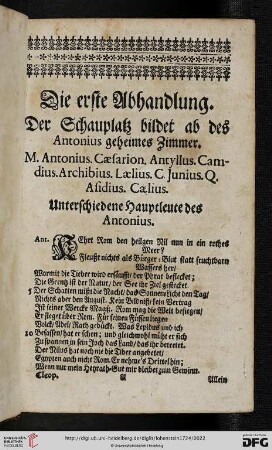 Die erste Abhandlung.
Der Schauplatz bildet ab des
Antonius geheimes Zimmer.
M. Antonius. Cæsarion. Antyllus. Cani-
dius. Archibius. Lælius. C. Junius. Q.
Asidius. Cælius.
Unterschiedene Hauptleute des
Antonius.
Ant. KEhrt Rom den heilgen Nil nun in ein rothes
Meer?
Fleußt nichts als Bürger-Blut statt fruchtbarn
Wassers her/
Wormit die Tieber wird ersäufft/ der Phrat beflecket;
Die Grentz ist der Natur/ der See ihr Ziel gestecket
5 Der Schatten mißt die Nacht/ das Sonnenlicht den Tag/
Nichts aber den August. Kein Bündniß/ kein Vertrag
Ist seiner Wercke Maaß. Rom mag die Welt besiegen/
Er sieget über Rom. Für seinen Füssen liegen
Volck/ Adel/ Rath gebückt. Was Lepidus und ich
10 Besassen/ hat er schon; und gleichwohl müht er sich
Zu spannen in sein Joch das Land/ das ihr betretet.
Der Nilus hat noch nie die Tiber angebetet/
Egypten auch nicht Rom. Er nehme's Drittel hin;
Wenn nur mein Heyrath-Gut mir bleibet zum Gewinn.
Cleop. A Allein
http://digi.ub.uni-heidelberg.de/diglit/lohenstein1724/0022
UNIVERSITÄTS-
BIBLIOTHEK
HEIDELBERG
© Universitätsbibliothek Heidelberg
gefördert durch die
DFG